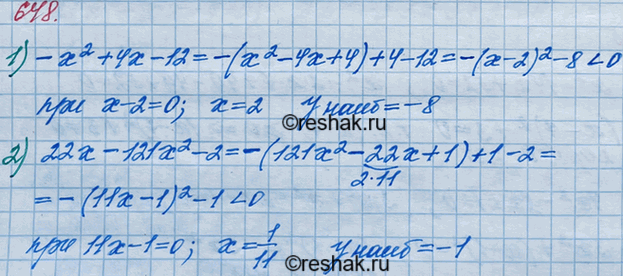 648.
1) -x² + 4x - 12 = -(x² - 4x + 4) + 4 - 12 = -(x-2)² - 8 < 0
при x-2=0; x=2 y наиб = -8
©reshak.ru
2) 22x - 121x² - 2 = -(121x² - 22x + 1) + 1 - 2 =
2·11
= -(11x-1)² - 1 < 0
©reshak.ru
при 11x-1=0; x = 1/11 y наиб = -1